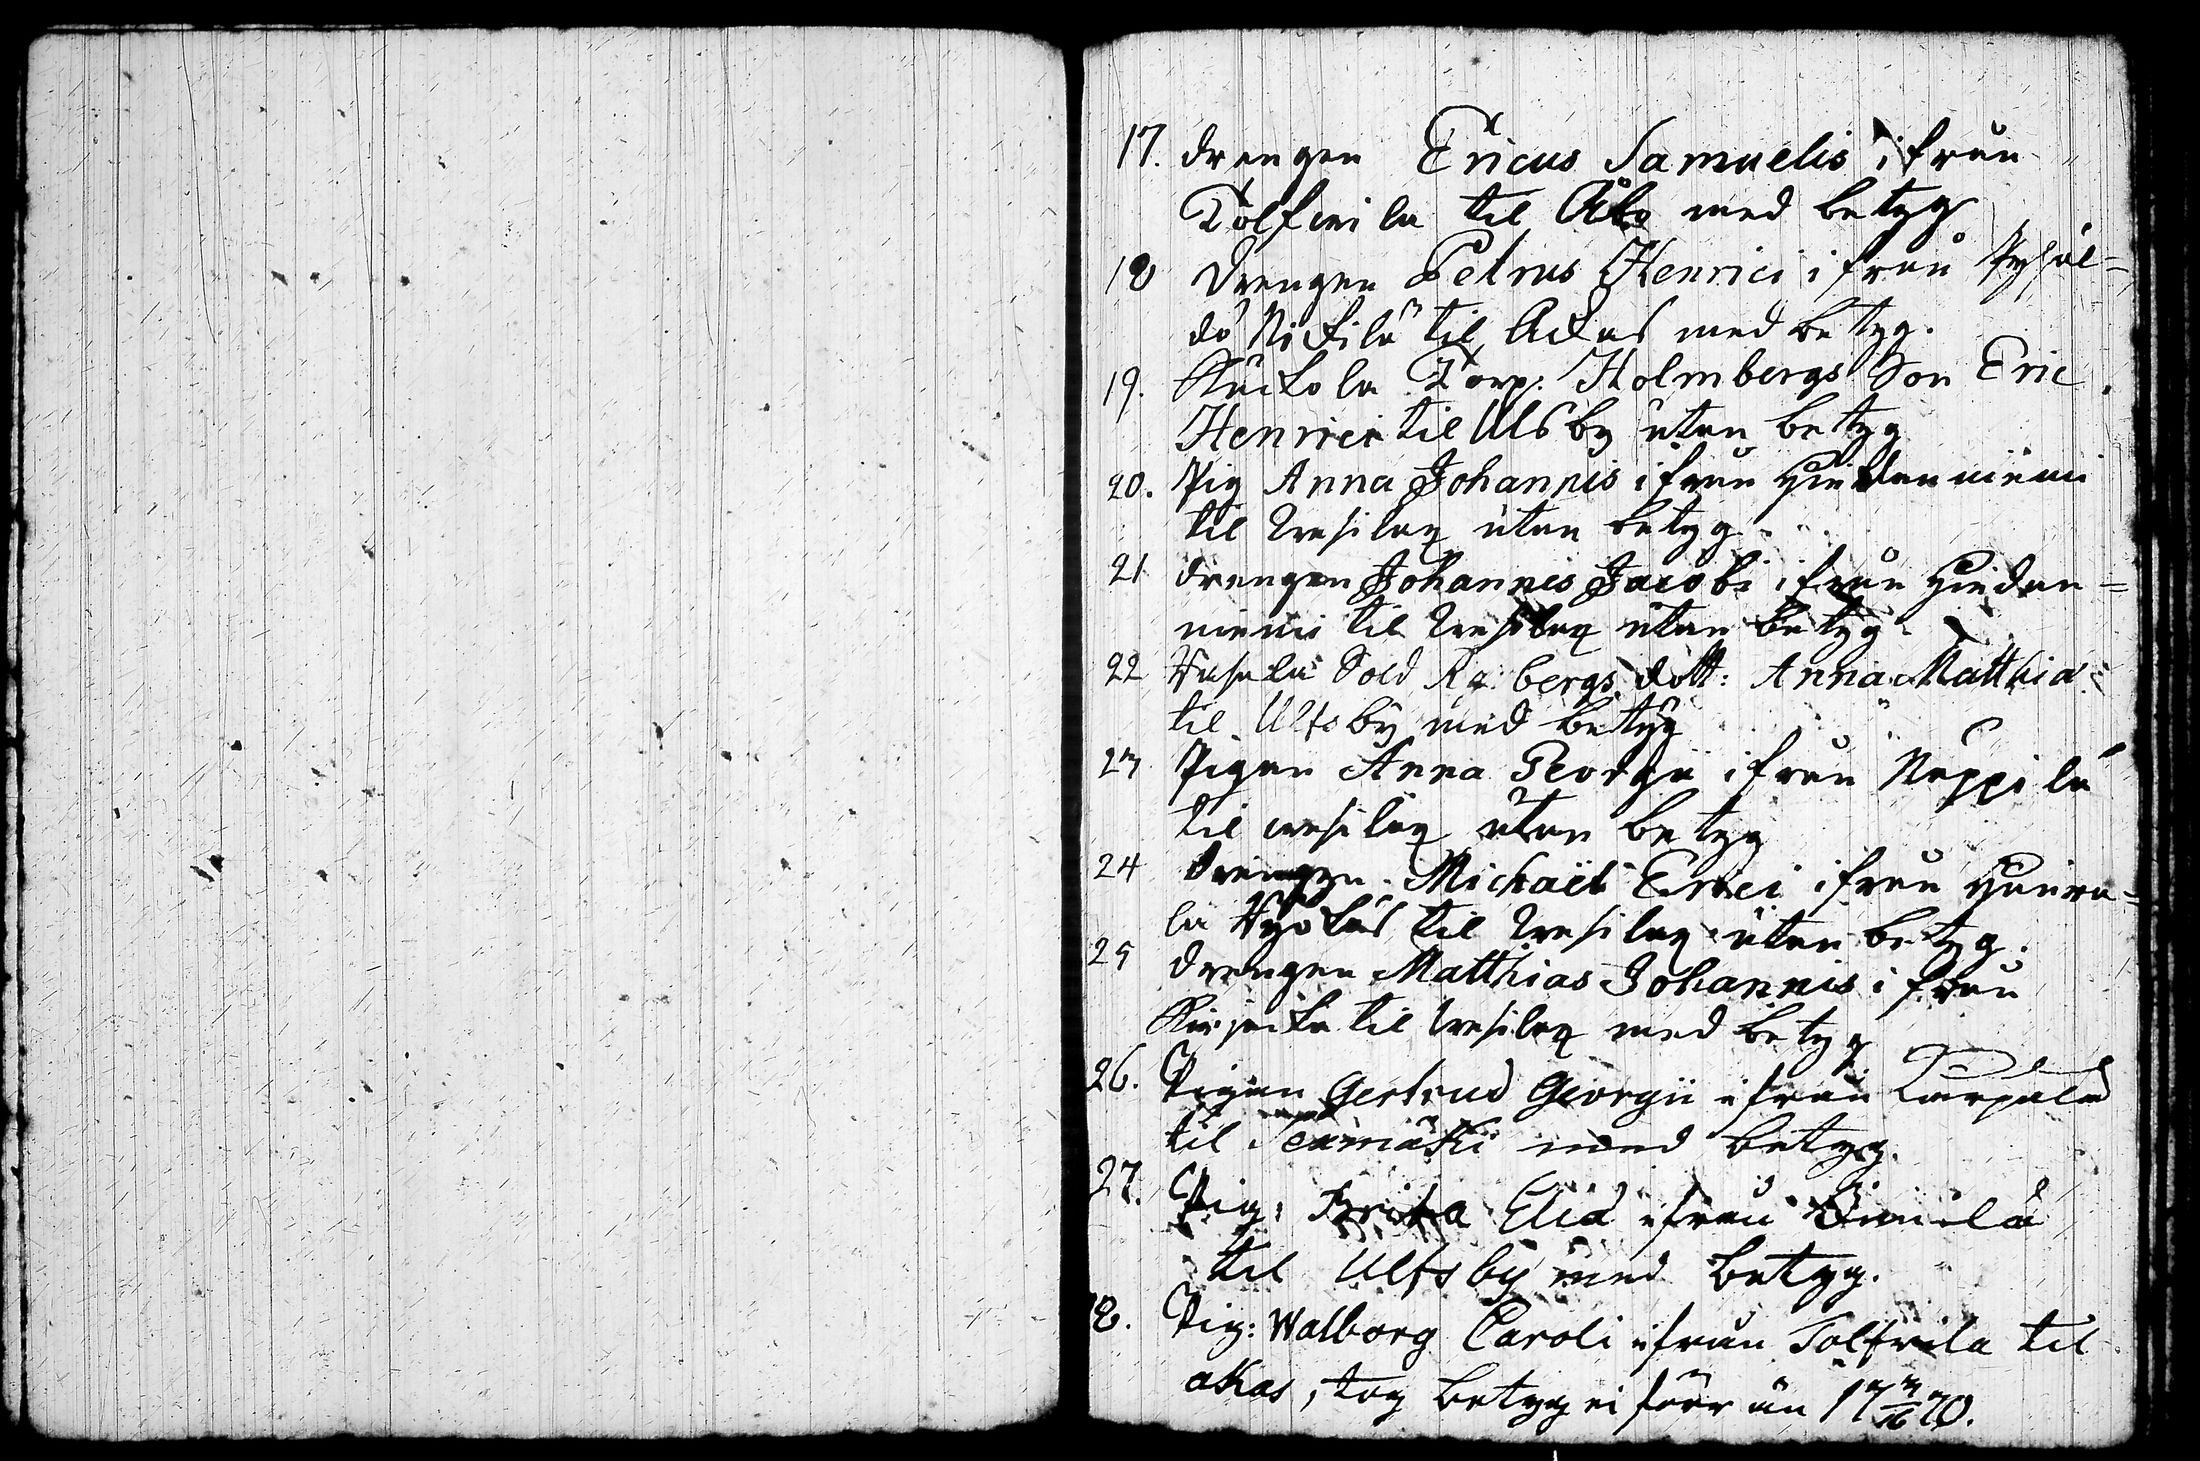 17. drengen Ericus Samuelis ifrån
Tolfwila til Åbo med betyg
18 Drengen Petrus Henrici ifrån Pyhäl-
dö Nickilä til Ackas med betyg.
19. Kuckola Torp: Holmbergs Son Eric
Henrici til Ulsby utan betyg
20. Pig Anna Johannis ifrån Hiedanniemi
til Wesilax utan betyg
21 drengen Johannes Jacobi ifrån Hiedan=
niemi til Wesilax utan betyg
22 Sold bergs dott: Anna Matthiæ
til Ulfsby med betyg
23 Pigan Anna Georgii ifrån Nappila
til wesilax utan betyg
24 drengen Michaël Erici ifrån Hanra=
la til Wesilax utan betyg.
25 drengen Matthias Johannis ifrån
til Wesilax med betyg
26. Pigan Gertrud Georgii ifrån Karpala
til med betyg.
27. Pig: Brita Eliæ ifrån
til Ulfsby med betyg.
28. Pig: Walborg Caroli ifrån Tolfvila til
akas, tog betyg ei förr än 17 3/16 70.